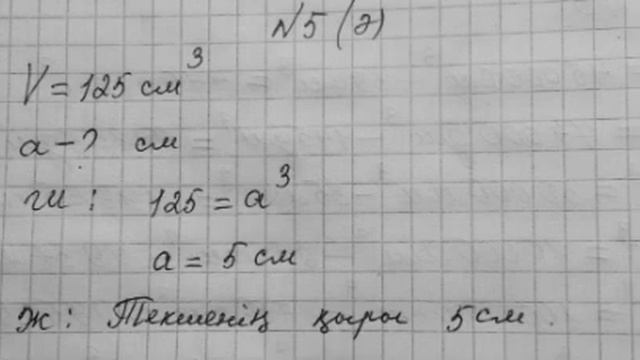 №5 (ә)
V = 125 см³
a - ? см
ш : 125 = a³
a = 5 см
ж : Текшенің қыры 5 см.